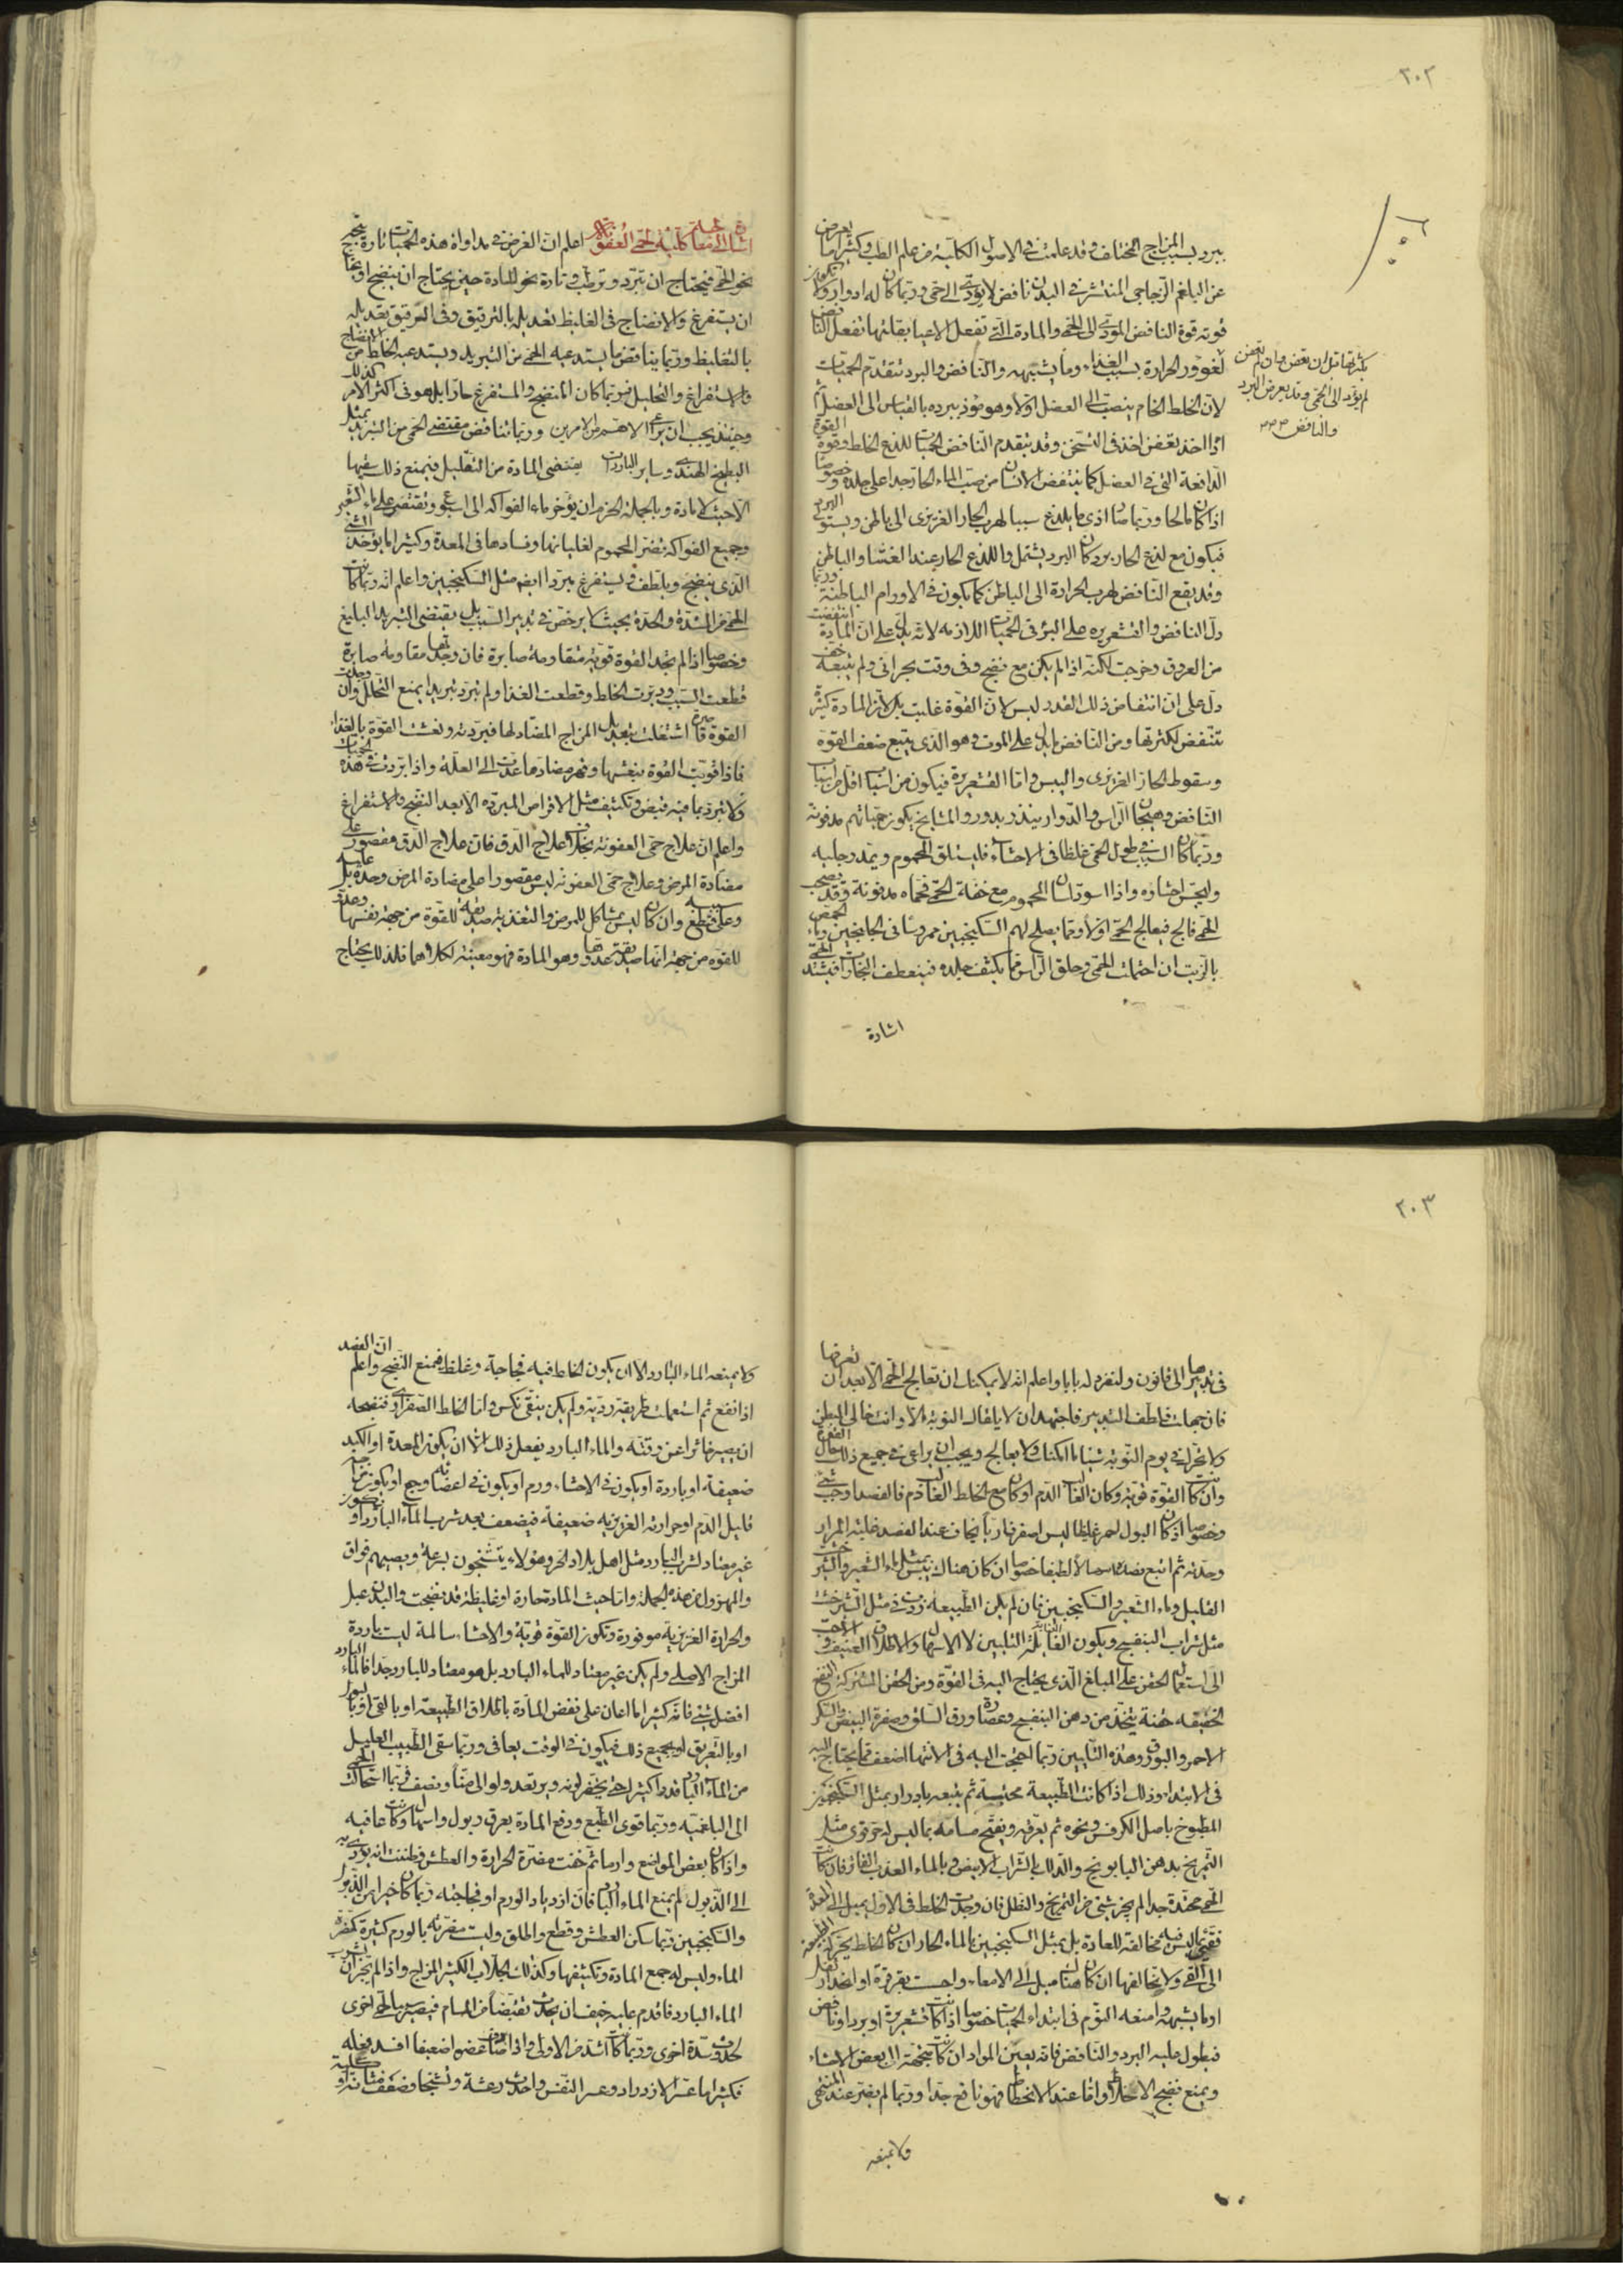 ٢٠٢
يبرد بسبب المزاج المختلف وقد علمت في الاصول الكلية من علم الطب وكثيرا ما يعرض
عن البلغم الزجاجي المنتشر في البدن نافض لا يؤدى الى حمى وربما كان له ادوار ولا يكون
قوته قوة النافض المودى الى الحمى والمادة التي تفعل الاعيا بقلتها تفعل النافض
بكثرتها قبل ان تعفن وان لم تعفن
لم يؤد الى الحمى وقد يعرض البرد
والنافض
لغوور الحرارة بسبب الغذاء وما يشبهه والنافض والبرد تتقدم الحميات
لان الخلط الخام ينصب الى العضل اولا وهو موذ ببرده بالقياس الى العضل ثم
اذا اخذ يعفن اخذ في التسخن وقد يتقدم النافض الحميات للذع الخلط وقوة القوة
الدافعة التي في العضل كما ينتفض الانسان من صب الماء الحار جدا على جلده وخصوصا
اذا كان مالحا وربما صار اذى ما يلذع سببا لهرب الحار الغريزى الى باطن ويستولى البرد
فيكون مع لذع الحار برد كان البرد يشتمل واللذع الحار عند الغشا والباطن
وقد يقع النافض لهرب الحرارة الى الباطن كما يكون في الاورام الباطنة وربما
دل النافض والقشعريرة على البرؤ في الحميات اللازمه لانه يدل على ان المادة انتفضت
من العروق وخرجت لكنه اذا لم يكن مع نضج وفى وقت بحرانى ولم يتبعه خف
دل على ان انتفاض ذلك القدر ليس لان القوة غلبت بل لان المادة كثيرة
تنتفض لكثرتها ومن النافض ما يدل على الموت وهو الذى يتبع ضعف القوة
وسقوط الحار الغريزى واليبس واما القشعريرة فيكون من اسباب اقل من اسباب
النافض وهيجان الراس والدوار ينذر بدور والمشايخ يكون حمياتهم مدفونة
وربما كان السبب في طول الحمى غلظا في الاحشاء فليستلق المحموم ويمد رجليه
وليجس احشاؤه واذا اسود لسان المحموم مع خفة الحمى فحماه مدفونة وقد يصحب
الحمى فالج فيعالج الحمى اولا ومما يصلح لهم السكنجبين ممروسا في الجلنجبين وماء الحمص
بالزيت ان احتملت الحمى وحلق الراس مما يكثف جلده فينعطف البخارات فيشتد الحمى
اشارة
اشارة الى معالجات كلية لحمى العفونة اعلم ان الغرض في مداواة هذه الحميات تارة يتجه
نحو الحمى فيحتاج ان تبرد وترطب وتارة نحو المادة حين يحتاج ان ينضج او يحتاج
ان يستفرغ والانضاج في الغليظ تعديله بالترقيق وفى الرقيق تعديله
بالتغليظ وربما يناقض ما يستدعيه الحمى من التبريد ويستدعيه الخلط من الانضاج
والاستفراغ والتحليل فربما كان المنضج والمستفرغ حارا بل هو في اكثر الامر كذلك
وحينئذ يجب ان يراعى الاهم من الامرين وربما تناقض مقتضى الحمى من التبريد بمثل
البطيخ الهندى وساير الباردات يقتضى المادة من التقليل فيمنع ذلك سقيها
الا حيث لا مادة وبالجملة الحزم ان يؤخر ماء الفواكه الى اسبوع ويقتصر على ماء الشعير
وجميع الفواكه تضر المحموم لغليانها وفسادها في المعدة وكثيرا ما يؤخذ الشئ
الذى ينضج ويلطف ويستفرغ مبردا ايضا مثل السكنجبين واعلم انه ربما كانت
الحمى من الشدة والحدة بحيث لا يرخص في تدبير السبب بل يقتضى التبريد البليغ
وخصوصا اذا لم تجد القوة قوية متقاومة صابرة فان وجدتها مقاومة صابرة
قطعت السبب ودبرت الخلط وقطعت الغذا ولم تبرد تبريدا يمنع التحلل وان وجدت
القوة قاصرة اشتغلت بتعديل المزاج المضاد لها فبردته ونعشت القوة بالغذا
فاذا قويت القوة بنعشها وقهر مضادها عدت الى العلة واذا بردت في هذه الحميات
ولا تبرد بما فيه قبض وتكثيف مثل الاقراص المبردة الا بعد النضج والاستفراغ
واعلم ان علاج حمى العفونة بخلاف علاج الدق فان علاج الدق مقصور على
مضادة المرض وعلاج حمى العفونة ليس مقصورا على مضادة المرض وحده بل عليه
وعلى قطع سببه وان كان ليس مشاكل للمرض والتغذية صديقة للقوة من جهة نفسها وعدوة
للقوة من جهة انها صديقة عدوها وهو المادة فهو معينة لكلاهما فلذلك يحتاج
٢٠٣
في تدبيرها الى قانون ولنفرد له بابا واعلم انه لا يمكنك ان تعالج الحمى الا بعد ان تعرفها
فان جهلت فلطف التدبير فاجتهد ان لا يلقاك النوبة الا وانت خالى البطن
ولا تحرك في يوم النوبة شيئا ما امكنك ولا تعالج ويجب ان يراعى في جميع ذلك حال القوة
وان كانت القوة قوية وكان الغالب الدم او كان مع الخلط الغالب دم فالفصد اوجب شئ
وخصوصا اذا كان البول احمر غليظا ليس اصفر ناريا يخاف عند الفصد غلبة المرار
وحدته ثم اتبع فصده اسهالا لطيفا خصوصا ان كان هناك يبس بمثل ماء الشعير والشيرخشت
القليل وماء الشعير والسكنجبين فان لم يكن الطبيعة زدت في مثل الشيرخشت
مثل شراب البنفسج ويكون الغاية التليين لا الاسهال والاطلاق العنيف والاحب
الى استعمال الحقن على المبلغ الذى يحتاج اليه في القوة ومن الحقن المشتركة النفع
الخفيفة حقنة يتخذ من دهن البنفسج وعصارة ورق السلق وصفرة البيض والسكر
الاحمر والبورق وهذه التليين ربما احتجت اليه في الانتها اضعف مما يحتاج اليه
في الابتداء وذلك اذا كانت الطبيعة محتبسة ثم يتبعه بادرار بمثل السكنجبين
المطبوخ باصل الكرفس ونحوه ثم يعرقه ويفتح مسامه بما ليس له حر قوى مثل
التمريخ بدهن البابونج والدلك بالشراب الابيض وبالماء العذب الفاتر فان كانت
الحمى محتدة جدا لم يجز شئ من التمريخ والنطل فان وجدت الخلط في الاول يميل الى المعدة
فقيئ بما ليس فيه مخالفة للعادة بل بمثل السكنجبين بالماء الحار ان كان الخلط يتحرك الطبيعة
الى القئ ولا تخالفها ان كان هناك ميل الى الامعاء واحست بقرقرة او انحدار ثقل
او ما يشبهه وامنعه النوم في ابتداء الحميات خصوصا اذا كانت قشعريرة او برد او نافض
فيطول عليه البرد والنافض فانه يعين المواد ان كانت متجهة الى بعض الاحشاء
ويمنع نضج الاخلاط واما عند الانحطاط فهو نافع جدا وربما لم يضر عند المنتهى
ولا يمنعه
ولا يمنعه الماء البارد الا ان يكون الخلط فيه فجاجة وغلظ فيمنع النضج واعلم ان الفصد
اذا نفع ثم استعملت طريقة ردية ولم يكن ينقى نكس واما الخلط الصفراوى فنضجه
ان يصير خاثرا عن رقته والماء البارد يفعل ذلك الا ان يكون المعدة او الكبد
ضعيفة او باردة او يكون في الاحشاء ورم او يكون في اعضائه وجع او يكون مزاجه
قليل الدم او حرارته الغريزيه ضعيفة فيضعف بعد شرب الماء البارد او يكون
غير معتاد لشرب البارد مثل اهل بلاد الحر وهؤلاء يتشنجون بسرعة ويصيبهم فواق
والمهزول من هذه الجملة واما حيث المادة حارة او غليظة قد نضجت والبدن عبل
والحرارة الغريزية موفورة وتكون القوة قوية والاحشاء سالمة ليست باردة
المزاج الاصلى ولم يكن غير معتاد للماء البارد بل هو معتاد للبارد جدا فالماء البارد
افضل شئ فانه كثيرا ما اعان على نفض المادة باطلاق الطبيعة او بالقئ او بالبول
او بالتعريق او بجميع ذلك فيكون في الوقت يعافى وربما سقى الطبيب العليل
من الماء البارد قدرا كثيرا حتى يخضر لونه ويرتعد ولو الى منا ونصف فربما استحالت الحمى
الى البلغمية وربما قوى الطبع ودفع المادة بعرق وبول واسهال وكانت عافيه
واذا كان بعض المواضع وارما ثم خفت مضرة الحرارة والعطش وظننت انه يؤدى به
الى الذبول لم يمنع الماء البارد فان ازدياد الورم او فجاجته ربما كان خيرا من الذبول
والسكنجبين ربما سكن العطش وقطع واطلق وليست مضرته بالورم كثيرة كمضرة
الماء وليس له جمع المادة وتكثيفها وكذلك الجلاب الكثير المزاج واذا لم يجز ان يشرب
الماء البارد فاقدم عليه خيف ان يحدث تقبضا من المسام فيصير بالحمى اخرى
لحدوث سدة اخرى وربما كانت اشد من الاولى واذا صادف عضوا ضعيفا افسد فعله
فكثيرا ما عسر الازدراد وعسر النفس واحدث رعشة وتشنجا وضعف مثانة او كلية